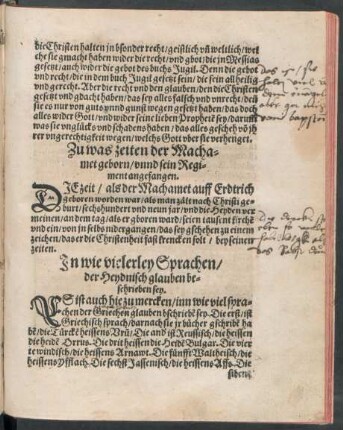 die Christen halten in bsonder recht / geistlich vñ weltlich / wel
che sie gmacht haben wider die recht / vnd gbot / die jn Messias
gesetzt / auch wider die gebot des buchs Jugil. Denn die gebot
vnd recht / die in dem buch Jugil gesetzt sein / die sein all heilig
vnd gerecht. Aber die recht vnd den glauben / den die Christen
gesetzt vnd gdacht haben / das sey alles falsch vnd vnrecht / deñ
sie es nur von guts vnnd gunst wegen gesetzt haben / das doch
alles wider Gott / vnd wider seine lieben Propheten sey / darumb
was sie vnglücks vnd schadens haben / das alles gescheh vō jh
rer vngerechtigkeit wegen / welchs Gott vber sie verhenget.
Zu was zeiten der Macha-
met geborn / vnnd sein Regi-
ment angefangen.
DIE zeit / als der Machamet auff Erdtrich
geboren worden war / als man zält nach Christi ge-
burt / sechs hundert vnd neun jar / vnd die Heyden ver
meinen / an dem tag / als er geboren ward / seien tausent kirchē
vnd ein / von jn selbs nidergangen / das sey gschehen zu einem
zeichen / das er die Christenheit fast krencken solt / bey seiner
zeiten.
In wie vielerley Sprachen /
der Heydnisch glauben be-
schrieben sey.
ES ist auch hie zu mercken / inn wie viel spra-
chen der Griechen glauben bschriebē sey. Die erst / ist
Griechisch sprach / darnach sie jr bücher gschribē ha
bē / die Türcken heissens Vrū. Die and ist Reussisch / die heissen
die heidē Orrus. Die drit heissen die Heidē Bulgar. Die vier
te windisch / die heissens Arnawt. Die fünffte Walheisch / die
heissens Yfflach. Die sechst Jassenisch / die heissens Affs. Die